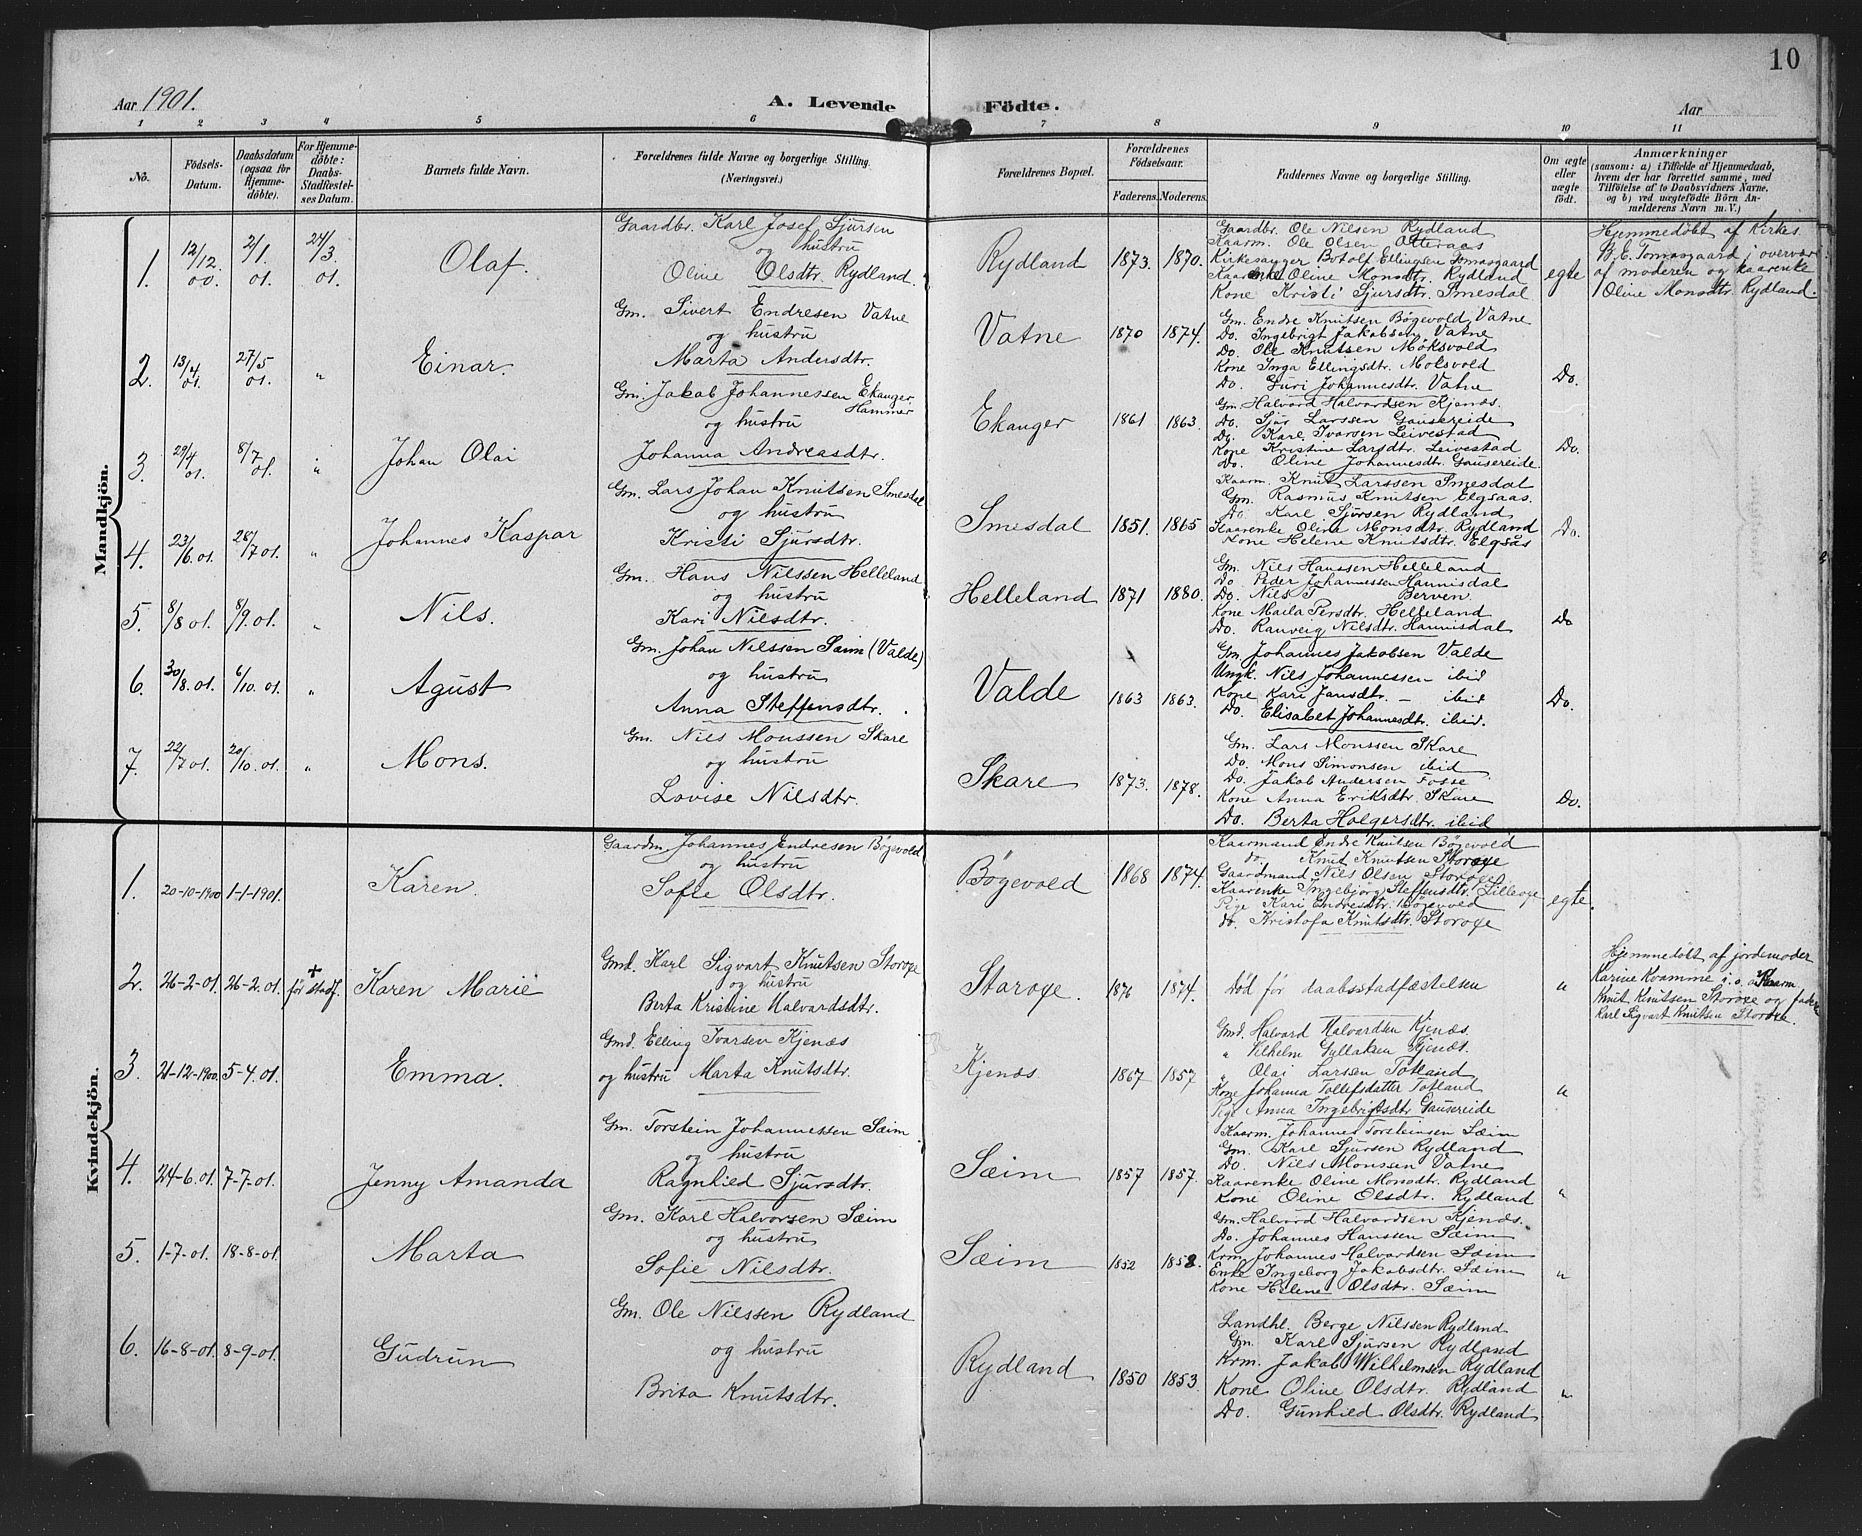 10
Aar 1901. A. Levende Födte. Aar
1 2 3 4 5 6 7 8 9 10 11
No. Födsels-Datum. Daabsdatum (ogsaa for Hjemmedöbte). For Hjemmedöbte: Daabs-Stadfæstelses Datum. Barnets fulde Navn. Forældrenes fulde Navne og borgerlige Stilling. (Næringsvei.) Forældrenes Bopæl. Forældrenes Födselsaar. Faderens. Moderens. Faddernes Navne og borgerlige Stilling. Om ægte eller uægte födt. Anmærkninger (saasom: a) i Tilfælde af Hjemmedaab, hvem der har forrettet samme, med Tilföielse af to Daabsvidners Navne, og b) ved uægtefödte Börn Anmelderens Navn m. V.)
Mandkjön.
1. 12/12.00. 2/1.01. 24/3.01. Olaf.
Gaardbr. Karl Josef Sjursen
og hustru
Oline Olsdtr. Rydland.
Rydland 1873. 1870.
Gaardbr. Ole Nilsen Rydland
Kaarm. Ole Olsen Otteraas
Kirkesanger Botolf Ellingsen Tomasgaard
Kaarenke Oline Monsdtr. Rydland
Kone Kristi Sjursdtr. Smesdal
egte
Hjemmedøbt af Kirkes.
B. E. Tomasgaard i overvær
af moderen og kaarenke
Oline Monsdtr. Rydland.
2. 13/4 01. 27/5 01. " Einar.
Gm. Sivert Endresen Vatne
og hustru
Marta Andersdtr.
Vatne 1870 1874.
Gm. Endre Knutsen Bøgevold Vatne
Do. Ingebrigt Jakobsen Vatne
Do. Ole Knutsen Moksvold
Kone Inga Ellingsdtr. Molsvold
Do. Guri Johannesdtr. Vatne
Do.
3. 29/4 01. 8/7 01. " Johan Olai
Gm. Jakob Johannessen Ekanger
Hammer
og hustru
Johanna Andreasdtr.
Ekanger 1861 1863.
Gm Halvard Halvardsen Kjenæs.
Do. Sjur Larssen Gauskreide
Do. Karl Ivarsen Leivestad
Kone Kristine Larsdtr. Leivestad
Do. Oline Johannesdtr. Gausereide.
Do.
4. 23/6 01. 28/7 01. " Johannes Kaspar
Gm. Lars Johan Knutsen Smesdal
og hustru
Kristi Sjursdtr.
Smesdal 1851. 1865
Kaarm. Knut Larssen Smesdal
Gm. Rasmus Knutsen Elgsaas.
Do Karl Sjursen Rydland
Kaarenke Oline Monsdtr. Rydland
Kone Helene Knutsdtr. Elgsås
Do.
5. 8/8 01. 8/9. 01. " Nils.
Gm. Hans Nilssen Helleland
og hustru
Kari Nilsdtr.
Helleland 1871 1880.
Gm. Nils Hanssen Helleland
Do Peder Johannessen Hannisdal
Do. Nils Berven.
Kone Maila Persdtr. Helleland
Do. Ranveig Nilsdtr. Hannisdal
Do
6. 30/8. 01. 6/10. 01. " Agust
Gm. Johan Nilssen Sæim (Valde)
og hustru
Anna Steffensdtr.
Valde 1863 1863.
Gm Johannes Jakobsen Valde
Ungk. Nils Johannessen ibid
Kone Kari Jansdtr. – ibid
Do. Elisabet Johannesdtr. ibid.
Do.
7. 22/7 01. 20/10. 01. " Mons.
Gm. Nils Monssen Skare
og hustru
Lovise Nilsdtr.
Skare 1873. 1878.
Gm. Lars Monssen Skare
Do. Mons Simonsen ibid
Do. Jakob Andersen Fosse
Kone Anna Eriksdtr. Skare
Do. Berta Holgersdtr. ibid
Do.
Kvindekjön.
1. 20-10-1900 1-1-1901. Karen.
Gaardm. Johannes Endresen Bøgevold
og hustru
Sofie Olsdtr.
Bøgevold 1868 1874.
Kaarmand Endre Knutsen Bøgevold
do. Knut Knutsen Storøxe
Gaardmand Nils Olsen Storøxe
Kaarenke Ingebjørg Steffensdtr. Lilleøxe
Pige Kari Endresdtr. Bøgevold
do. Kristofa Knutsdtr. Storøxe
egte.
2. 26-2-01. 26-2.01. + før stadf. Karen Marie
Gmd. Karl Sigvart Knutsen Storøxe
og hustru
Berta Kristine Halvardsdtr.
Storøxe. 1876 1874.
Død før daabsstadfæstelsen
"
Hjemmedøbt af jordemoder
Karine Kvamme i. o. a Kaarm.
Knut Knutsen Storøxe og fader
Karl Sigvart Knutsen Storøxe.
3. 21-12-1900. 5-4.01. Emma.
Gmd. Elling Ivarsen Kjenæs
og hustru Marta Knutsdtr.
Kjenæs 1867 1857
Gmd. Halvard Halvardsen Kjenæs.
" Vilhelm Gullaksen Kjenæs.
" Olai Larsen Totland
Kone Johanna Tollefsdatter Totland
Pige Anna Ingebrigtsdtr Gausereide
"
4. 24-6.01 7-7.01. Jenny Amanda
Gm. Torstein Johannessen Sæim
og hustru
Ragnhild Sjursdtr.
Sæim 1857 1857.
Kaarm. Johannes Torsteinsen Sæim
Gm. Karl Sjursen Rydland
Do. Nils Monssen Vatne
Kaarenke Oline Monsdtr. Rydland
Kone Oline Olsdtr. Rydland
"
5. 1-7-01. 18-8-01. Marta
Gm. Karl Halvorsen Sæim
og hustru
Sofie Nilsdtr.
Sæim 1852 1858
Gm. Halvard Halvardsen Kjenæs.
Do. Johannes Hanssen Sæim
Krm. Johannes Halvardsen Sæim
Enke Ingeborg Jakobsdtr. Sæim
Kone Helene Olsdtr. Sæim
"
6. 16-8-01. 8-9-01. Gudrun
Gm. Ole Nilssen Rydland
og hustru
Brita Knutsdtr.
Rydland 1850 1853.
Landhl. Berge Nilssen Rydland
Gm. Karl Sjursen Rydland
Krm. Jakob Wilhelmsen Rydland
Kone Oline Olsdtr. Rydland
Do. Gunhild Olsdtr. Rydland
"